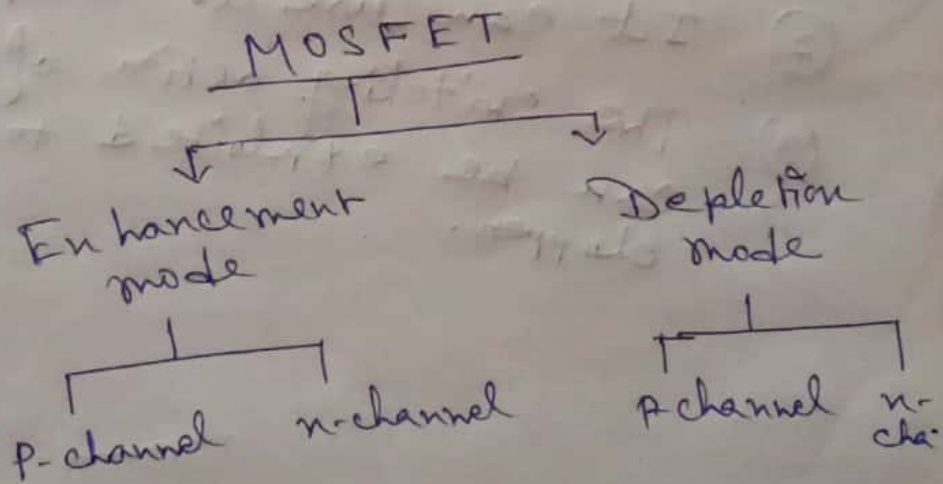 MOSFET
Enhancement Depletion
mode mode
p-channel n-channel p-channel n-
cha.